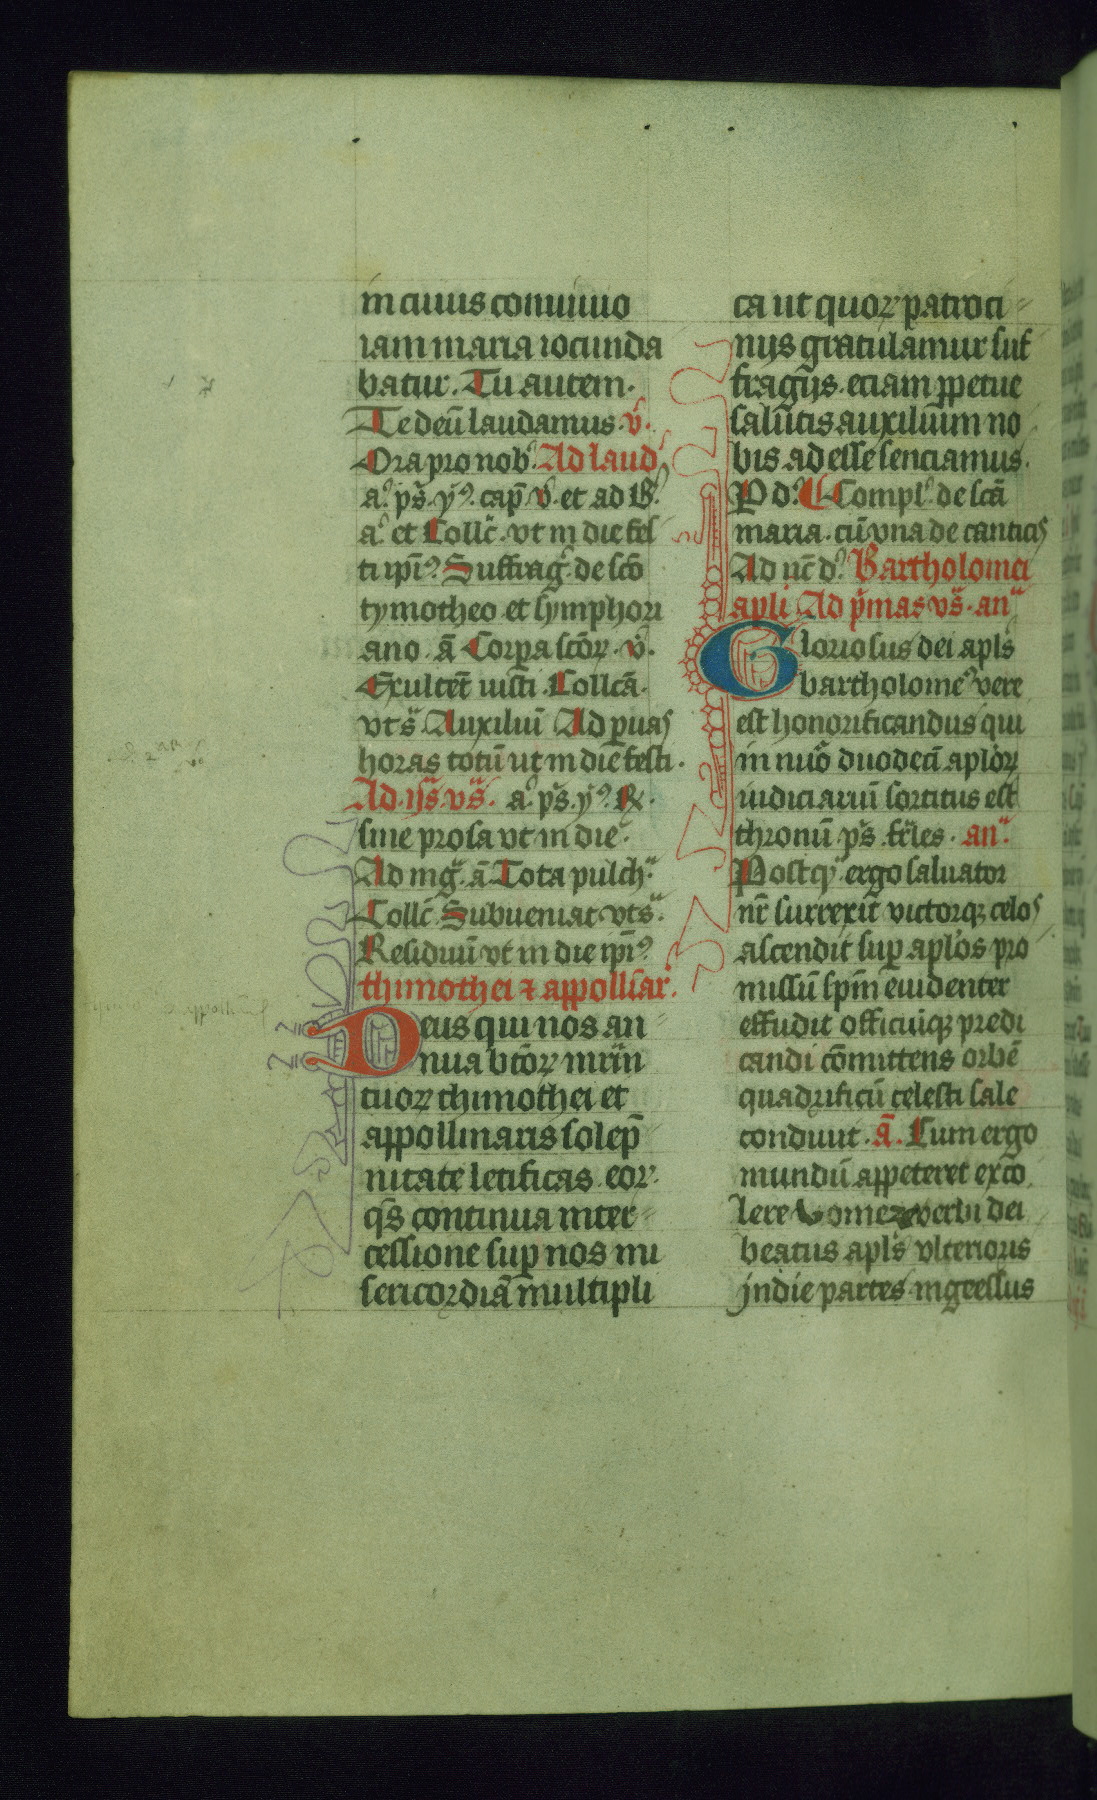 in cuius conuiuio
iam maria iocunda
batur. Tu autem.
Te deū laudamus. v̄.
Ora pro nob̾. Ad laud̾
a̾. ps̄. y̾. cap̄. v̄. et ad B̾.
a̾. et Collc̄. vt in die fes
ti ipī̾. Suffrag̾. de scō
tymotheo et symphori
ano. ā. Corꝑa scōꝝ. v̄.
Exultēt iusti. Collcā.
vt s̄. Auxiliū Ad pͥuas
horas totū ut in die festi.
Ad .ijᵃs. vs̄. a̾. ps̄. y̾. ꝶ.
sine prosa vt in die.
Ad mgᵃ. ā. Tota pulchᵃ.
Collc̄. Subueniat. vt sᵃ.
Residuū vt in die ipī̾
thimothei ⁊ appolliar̄.
Deus qui nos an
nua btōꝝ mr̄m
tuoꝝ thimothei et
appollinaris solēp̄
nitate letificas. eoꝝ.
qs̄ continua inter
cessione suꝑ nos mi
sericordiā multipli
ca ut quoꝝ patroci
nijs gratulamur suf
fragijs. eciam ꝑpetue
salutis auxilium no
bis adesse senciamus.
P d̾. Compl̾. de scā
maria. cū vna de canticis
Ad nc̄ d̾. Bartholomei
apli Ad pͥmas vs̄. anᵃ
Gloriosus dei apls̄
bartholome̾ vere
est honorificandus qui
in nūo duodecī aploꝝ
iudiciariū sortitus est
thronū ps̄. fr̄les. anᵃ.
Postqᵃ ergo saluator
nr̄ surrexit victorqꝫ celos
ascendit suꝑ aplos pro
missū spm̄ euidenter
effudit officiūqꝫ predi
candi cōmittens orbē
quadrificū celesti sale
condiuit. ā. Cum ergo
mundū appeteret exco
lere vomere verbi dei
beatus apls̄ vlterioris
jndie partes ingressus